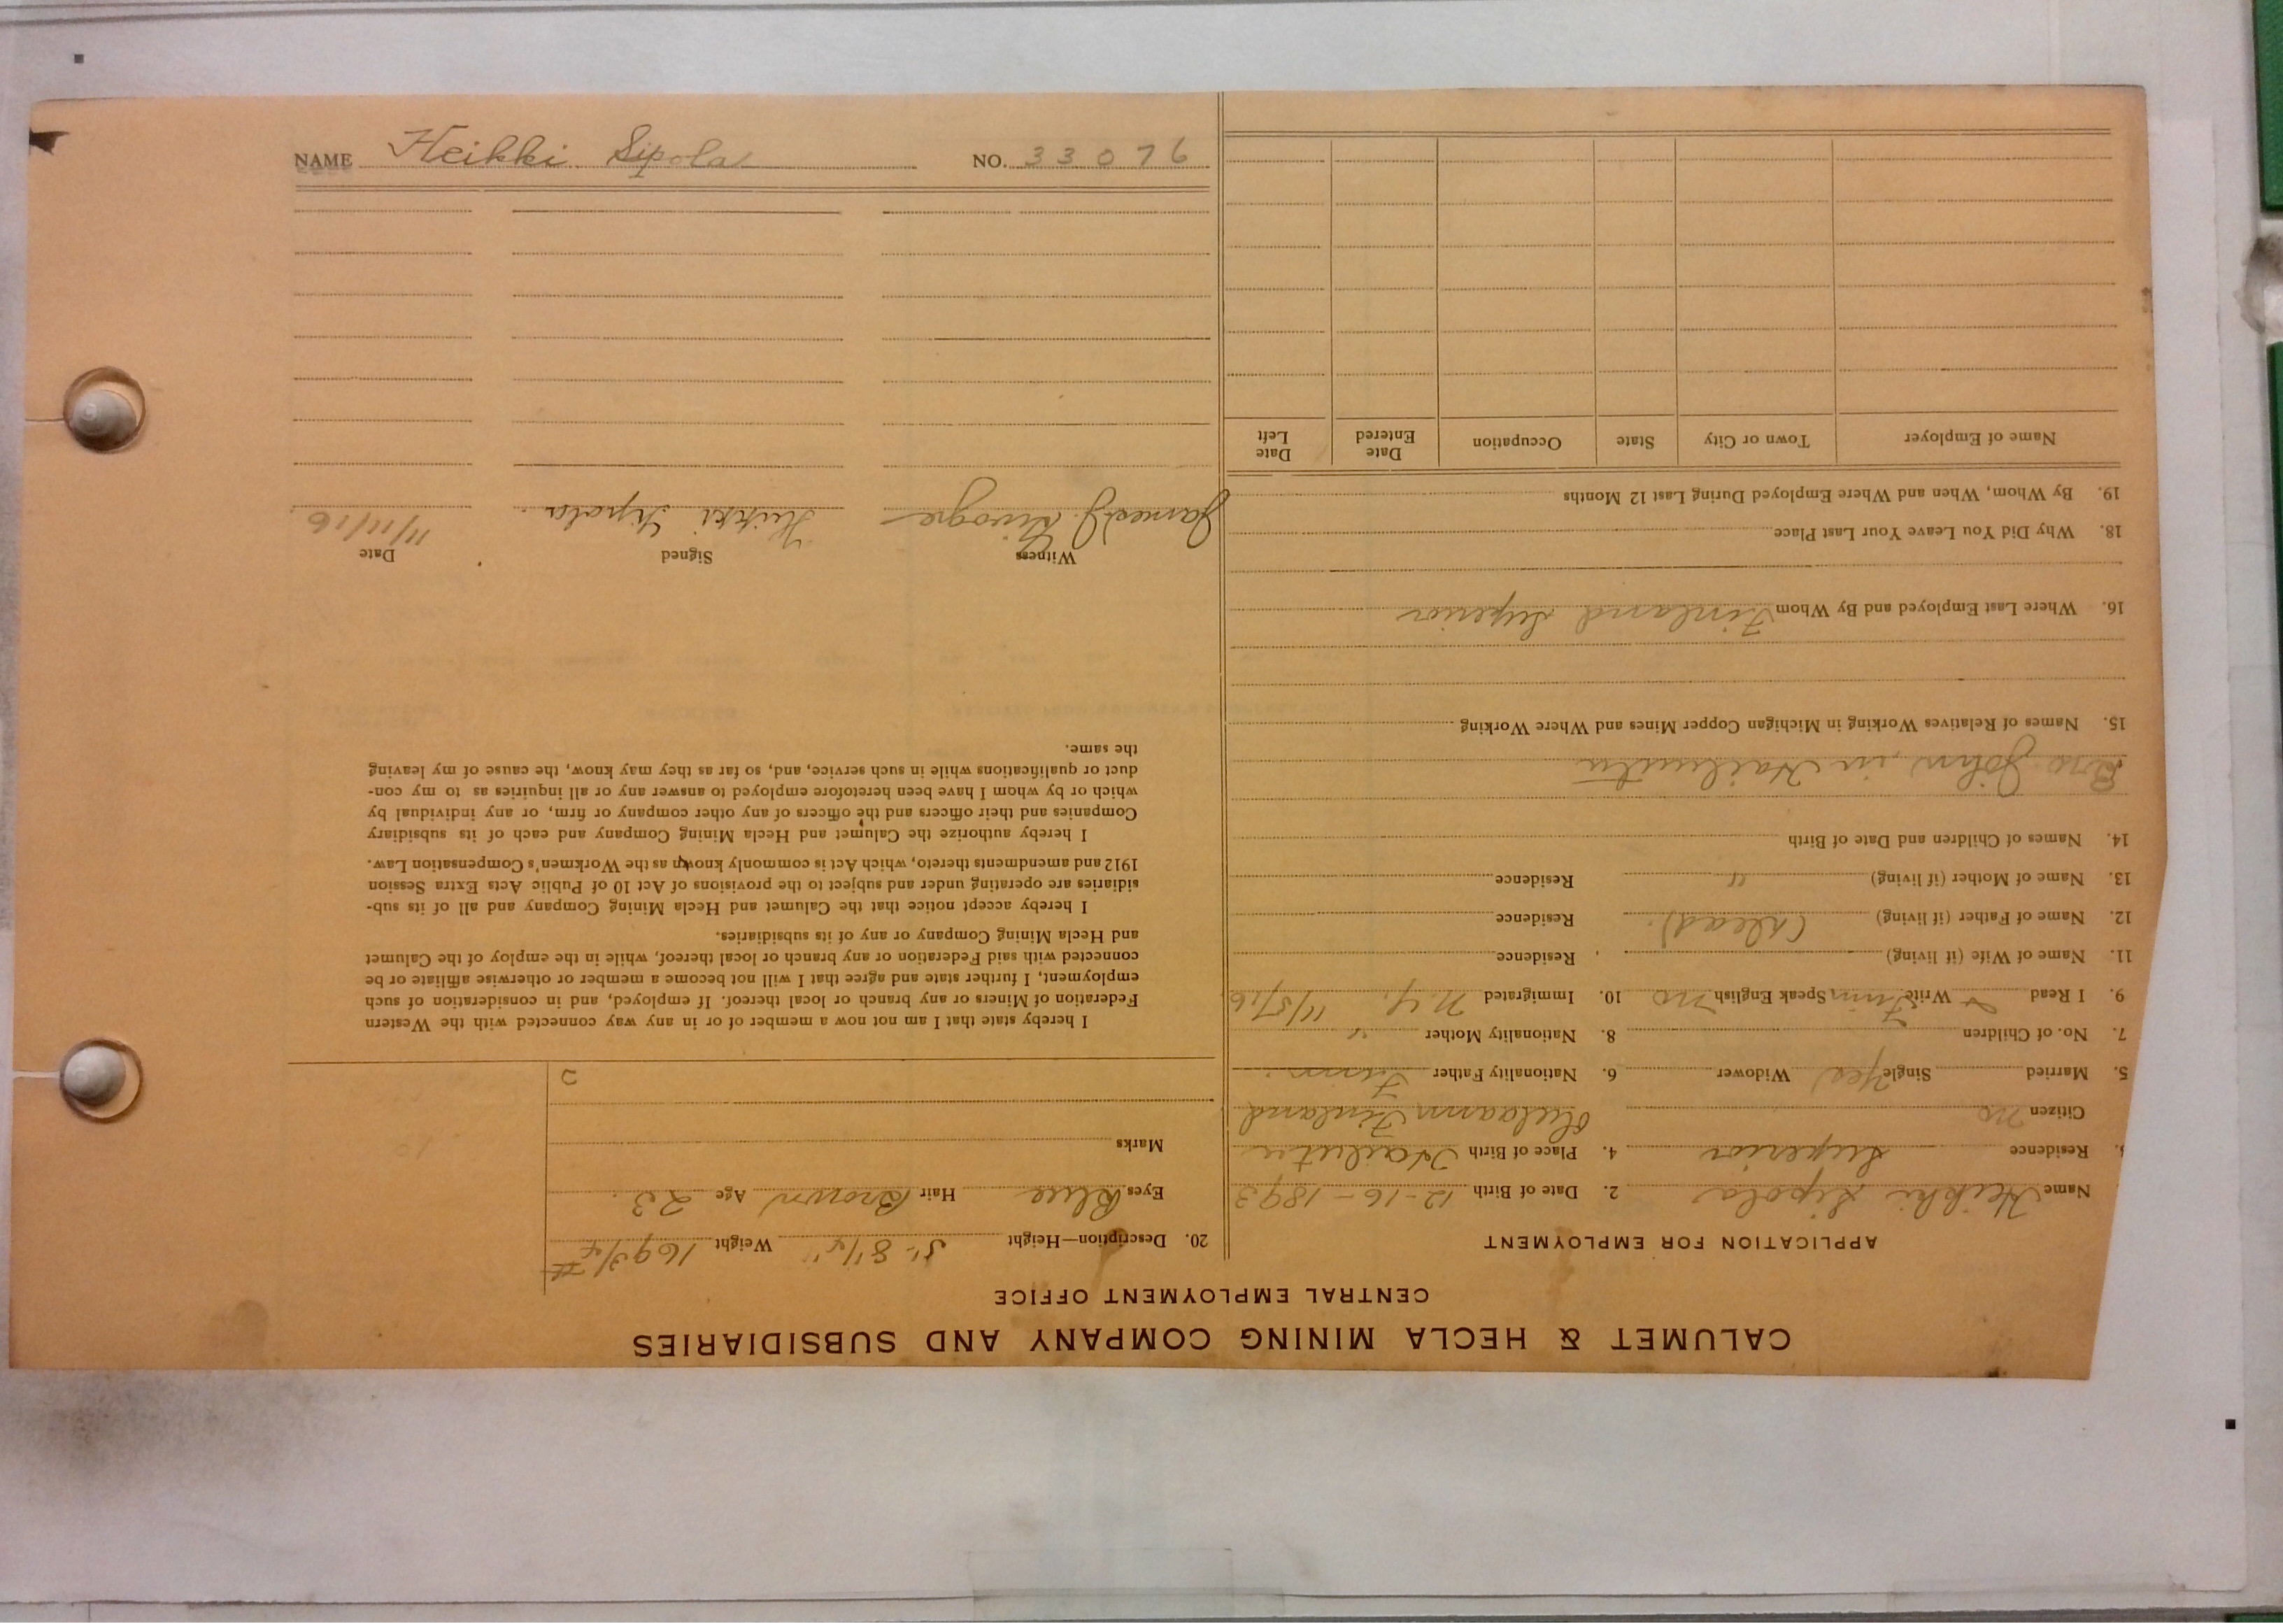 CALUMET & HECLA MINING COMPANY AND SUBSIDIARIES
CENTRAL EMPLOYMENT OFFICE
APPLICATION FOR EMPLOYMENT
Name Heikki Sipola 2. Date of Birth 12-16-1893
Residence Superior 4. Place of Birth
Citizen no Finland
5. Married Single Yes Widower 6. Nationality Father Finn.
7. No. of Children 8. Nationality Mother "
9. I Read & Write Finn Speak English no 10. Immigrated N.Y. 11/5/16
11. Name of Wife (if living) Residence
12. Name of Father (if living) (Dead) Residence
13. Name of Mother (if living) " Residence
14. Names of Children and Date of Birth
Bro. John, in
15. Names of Relatives Working in Michigan Copper Mines and Where Working
16. Where Last Employed and By Whom Finland Superior
18. Why Did You Leave Your Last Place
19. By Whom, When and Where Employed During Last 12 Months
Name of Employer Town or City State Occupation Date Entered Date Left
20. Description—Height 5'-8 1/4" Weight 169 3/4 #
Eyes Blue Hair Brown Age 23.
Marks
I hereby state that I am not now a member of or in any way connected with the Western
Federation of Miners or any branch or local thereof. If employed, and in consideration of such
employment, I further state and agree that I will not become a member or otherwise affiliate or be
connected with said Federation or any branch or local thereof, while in the employ of the Calumet
and Hecla Mining Company or any of its subsidiaries.
I hereby accept notice that the Calumet and Hecla Mining Company and all of its sub-
sidiaries are operating under and subject to the provisions of Act 10 of Public Acts Extra Session
1912 and amendments thereto, which Act is commonly known as the Workmen's Compensation Law.
I hereby authorize the Calumet and Hecla Mining Company and each of its subsidiary
Companies and their officers and the officers of any other company or firm, or any individual by
which or by whom I have been heretofore employed to answer any or all inquiries as to my con-
duct or qualifications while in such service, and, so far as they may know, the cause of my leaving
the same.
Witness Signed Date
James J. Heikki Sipola 11/11/16
NAME Heikki Sipola NO. 33076